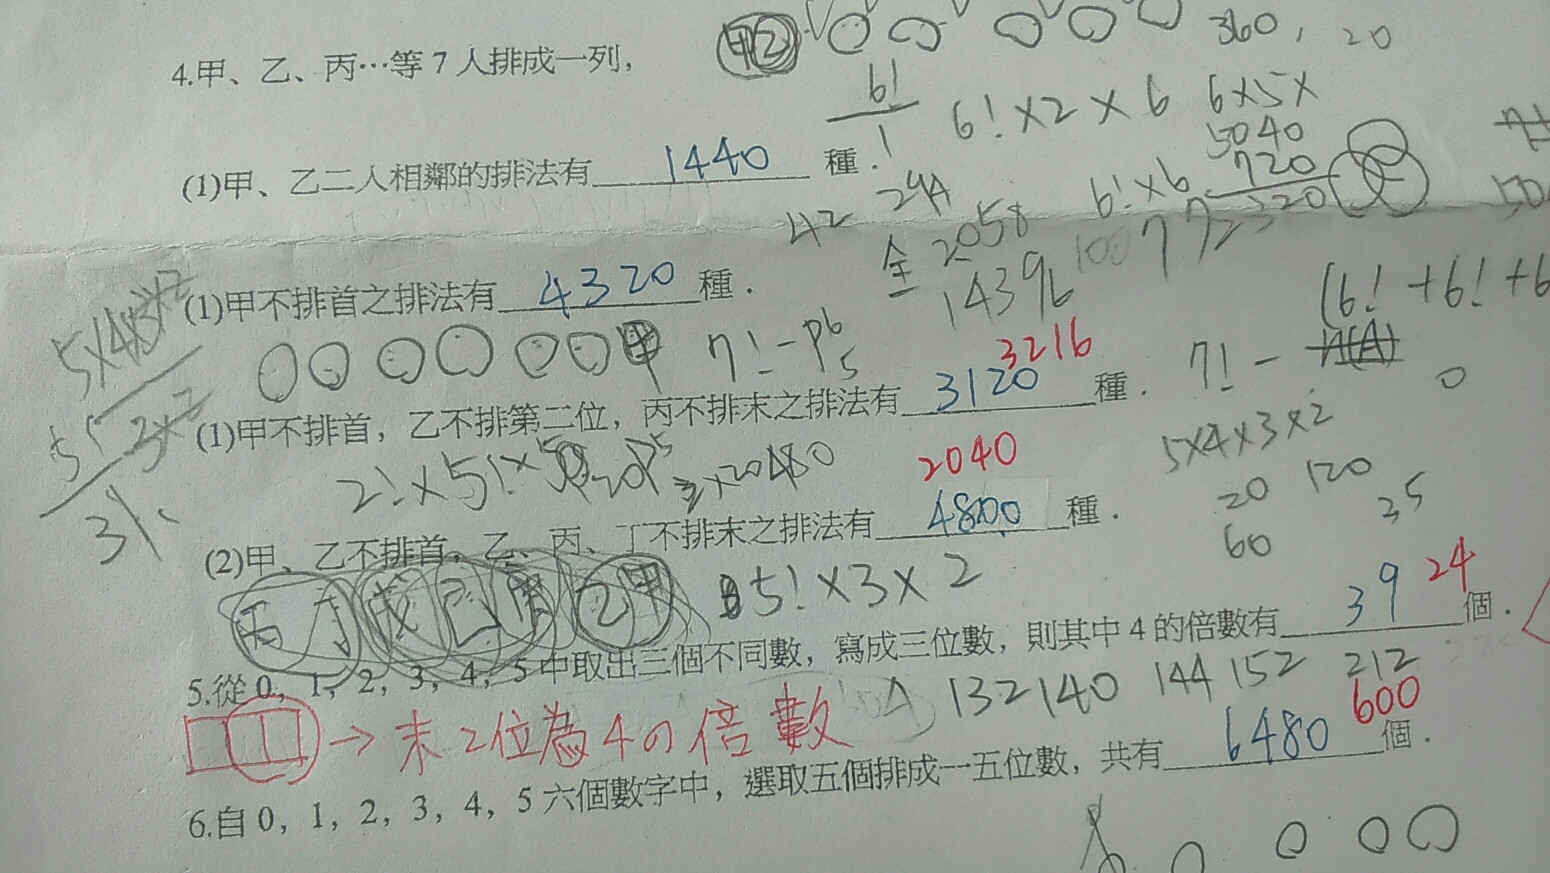 360, 20
甲乙
4.甲、乙、丙…等7人排成一列,
6!
1
6!×2×6 6×5×
5040
720
(1)甲、乙二人相鄰的排法有 1440 種.
6!×6
42
全 2058
1439
(1)甲不排首之排法有 4320 種.
(6!+6!+6
甲 7!-P
3216
7! - n(A)
0
(1)甲不排首,乙不排第二位,丙不排末之排法有 3120 種.
5×4×3×2
2!×5!×
2040
20 120
25
60
(2)甲、乙不排首,乙、丙、丁不排末之排法有 4800 種.
丙丁 乙甲 5!×3×2
24
5.從0,1,2,3,4,5中取出三個不同數,寫成三位數,則其中4的倍數有 39 個.
→ 末2位為4の倍數
132 140 144 152 212
600
6.自0,1,2,3,4,5六個數字中,選取五個排成一五位數,共有 6480 個.